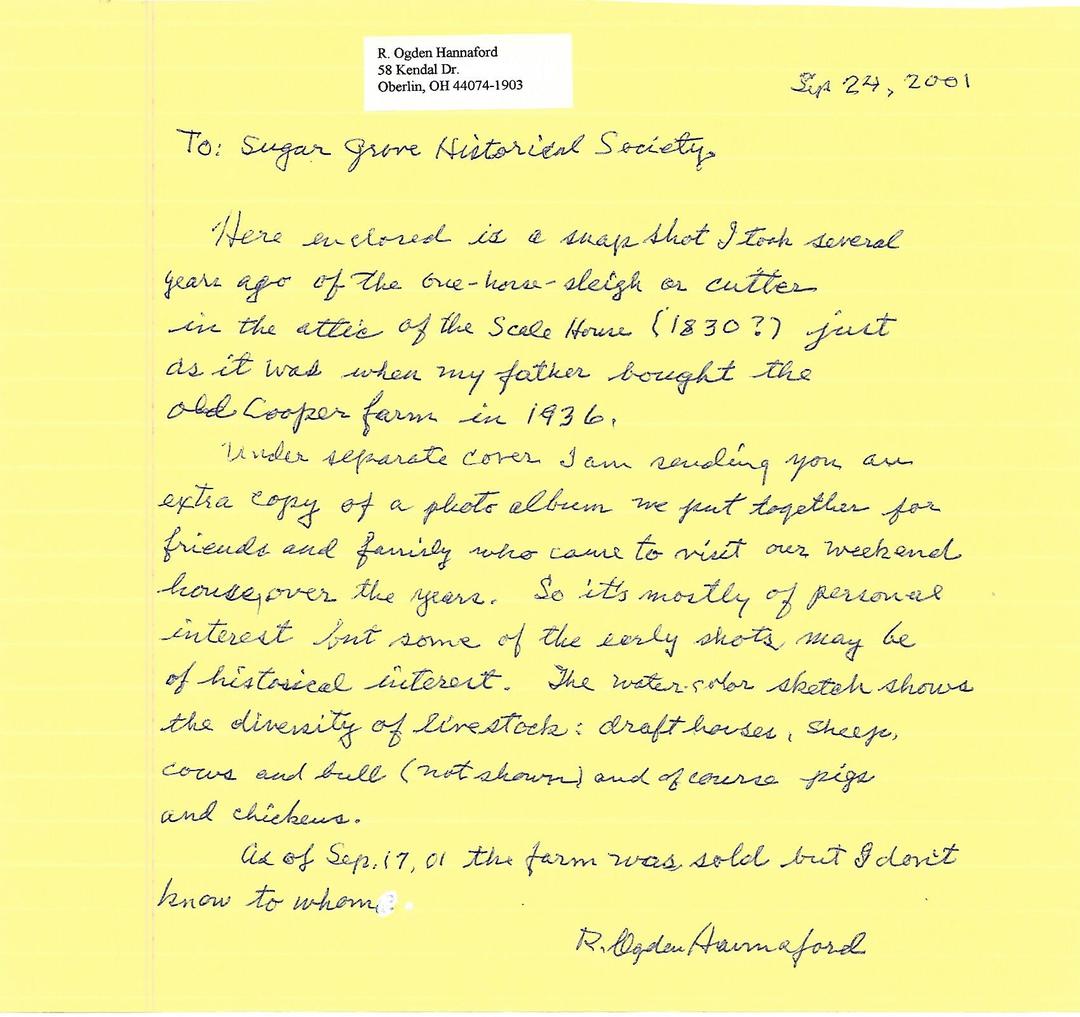 R. Ogden Hannaford
58 Kendal Dr.
Oberlin, OH 44074-1903
Sep 24, 2001
To: Sugar Grove Historical Society,
Here enclosed is a snap shot I took several
years ago of the one-horse-sleigh or cutter
in the attic of the Scale House (1830?) just
as it was when my father bought the
old Cooper farm in 1936.
Under separate cover I am sending you an
extra copy of a photo album we put together for
friends and family who came to visit our weekend
house, over the years. So it's mostly of personal
interest but some of the early shots may be
of historical interest. The water-color sketch shows
the diversity of livestock: draft horses, sheep,
cows and bull (not shown) and of course pigs
and chickens.
As of Sep. 17, 01 the farm was sold but I don't
know to whom.
R. Ogden Hannaford